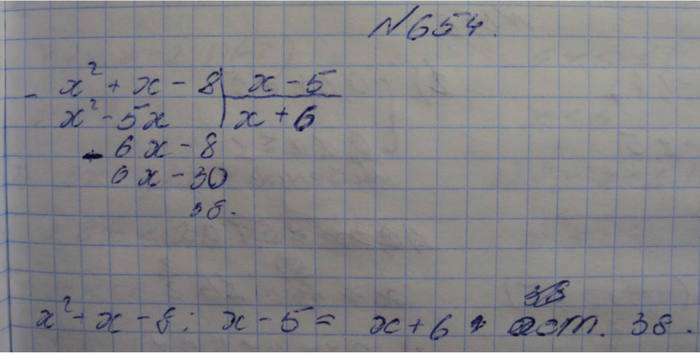 №654.
- x² + x - 8 | x - 5
x² - 5x | x + 6
- 6x - 8
6x - 30
38.
38
x² + x - 8 : x - 5 = x + 6 ост. 38.